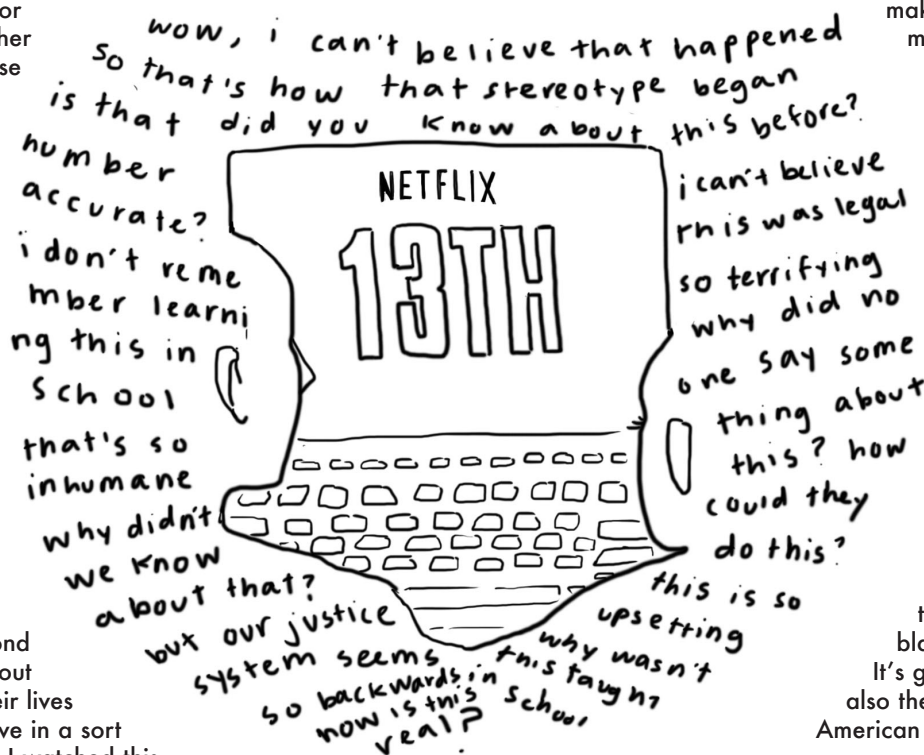 or
her
se
mak
m
wow, i can't believe that happened
so that's how that stereotype began
is that did you know about this before?
number
accurate?
i don't reme
mber learni
ng this in
school
that's so
inhumane
why didn't
we know
about that?
but our justice
system seems
so backwards in
how is this
real?
NETFLIX
13TH
i can't believe
this was legal
so terrifying
why did no
one say some
thing about
this? how
could they
do this?
this is so
upsetting
why wasn't
this taught
school
ond
out
eir lives
ve in a sort
I watched this
t
bla
It's g
also the
American